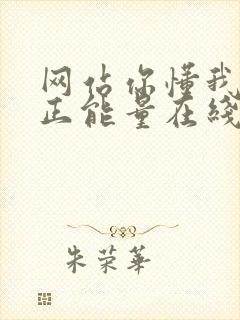 网站你懂我
正能量在线
朱荣华